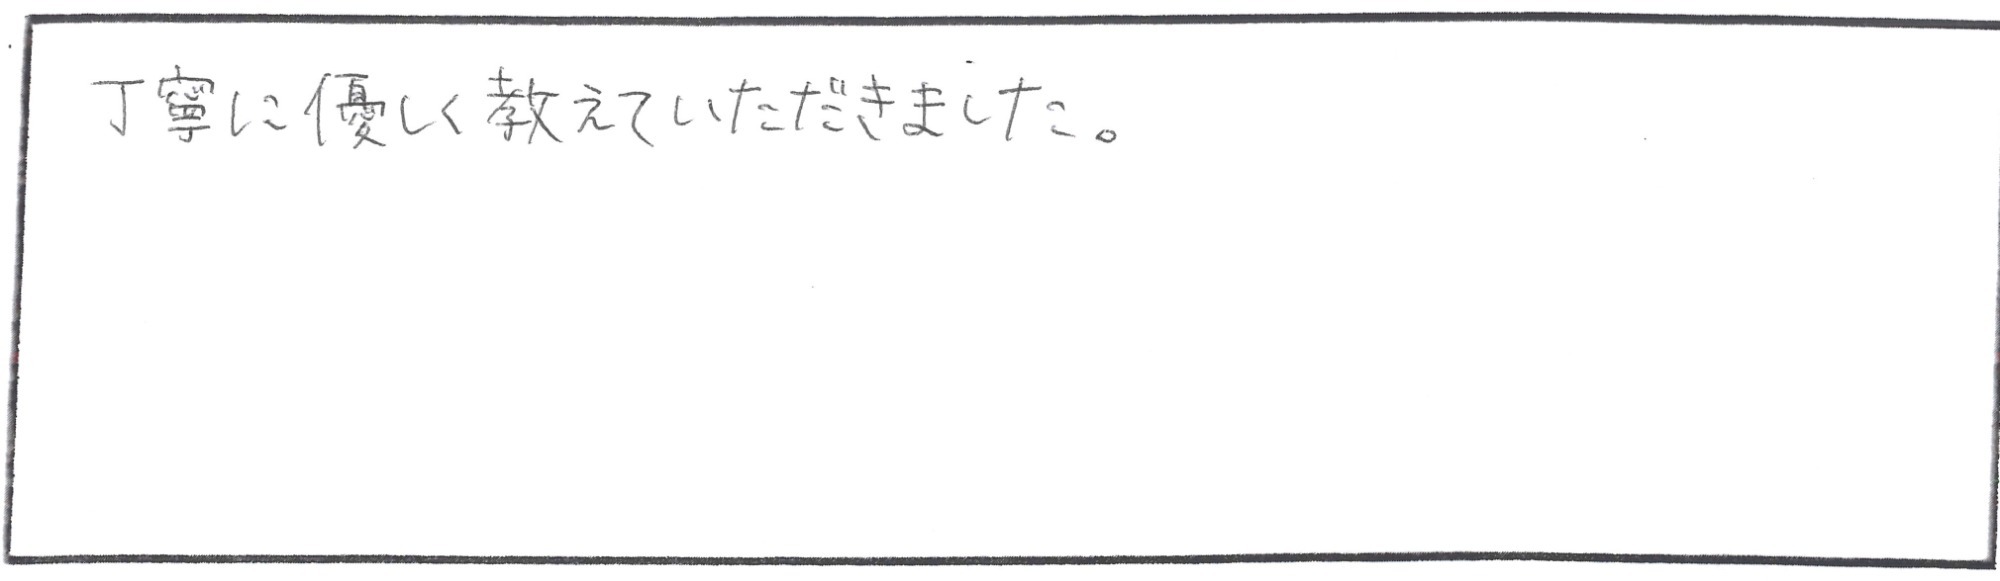 丁寧に優しく教えていただきました。